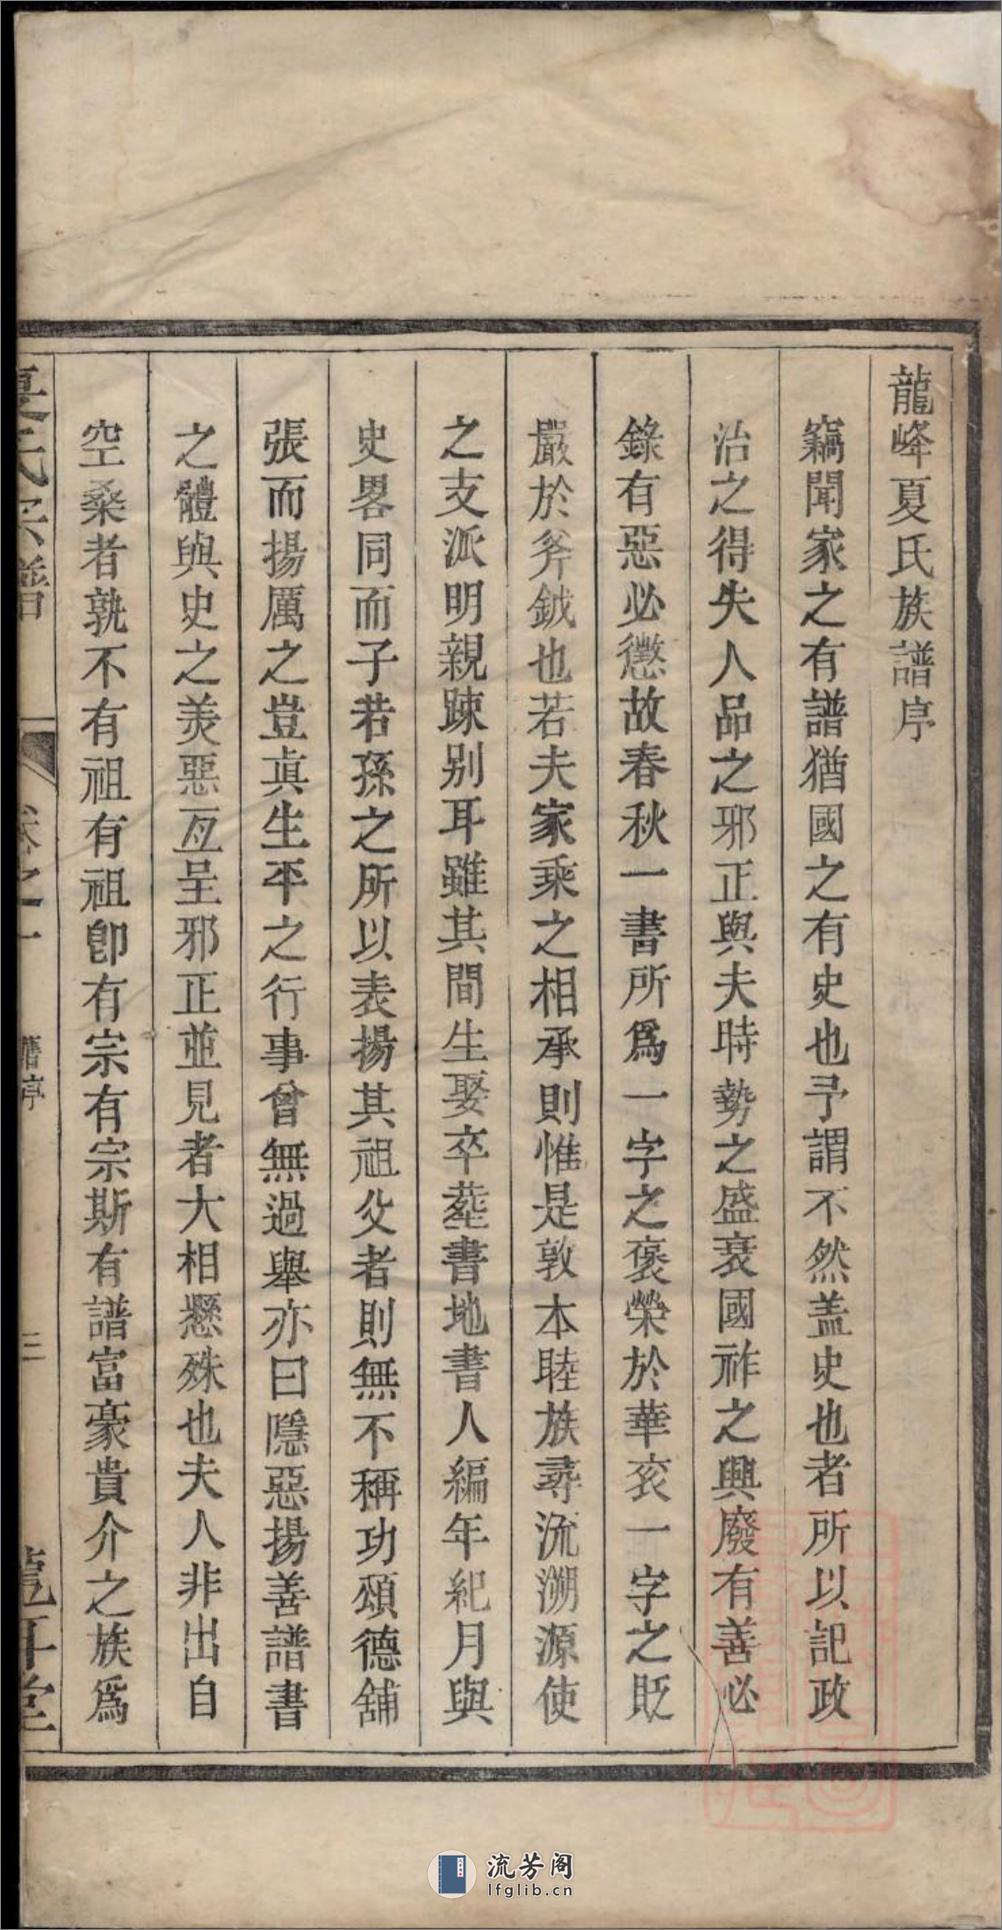 龍峰夏氏族譜序
竊聞家之有譜猶國之有史也予謂不然盖史也者所以記政
治之得失人品之邪正與夫時勢之盛衰國祚之興廢有善必
錄有惡必懲故春秋一書所爲一字之褒榮於華衮一字之貶
嚴於斧鉞也若夫家乘之相承則惟是敦本睦族尋流溯源使
之支派明親踈别耳雖其間生娶卒塟書地書人編年紀月與
史畧同而子若孫之所以表揚其祖父者則無不稱功頌德舖
張而揚厲之豈眞生平之行事曾無過舉亦曰隱惡揚善譜書
之體與史之美惡互呈邪正並見者大相懸殊也夫人非出自
空桑者孰不有祖有祖卽有宗有宗斯有譜富豪貴介之族爲
夏氏宗譜
卷之一
舊序
三
流芳阁
lfglib.cn